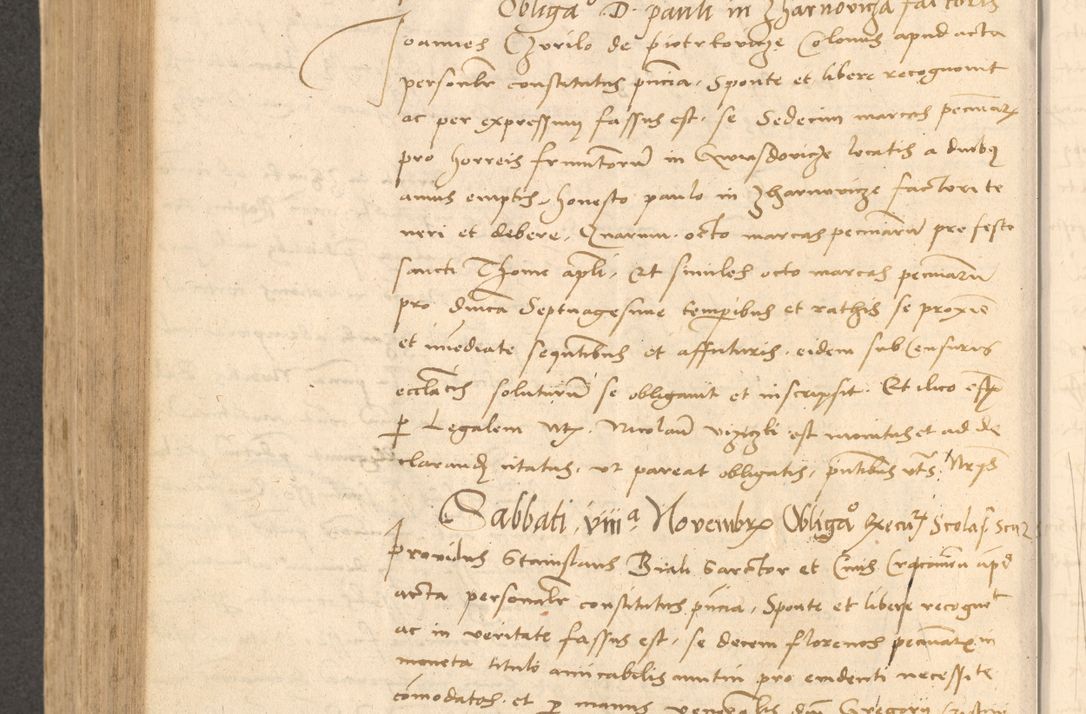 Obliga⁰ D. pauli in Zharnovicza factoris
Joannes Czvrilo de piotrkovicze Colonus apud acta
personalr constitutus pñcia, Sponte et libere recognovit
ac per expressum fassus est, se Sedecim marcas pecuniarx
pro horreis frumentorũ in Gwisdovicze locatis a duobq
annis emptis, honesto paulo in Zharnovicze factori te
neri et debere, Quarum octo marcas pecuniarũ pro festo
sancti Thome apłi, Et similes octo marcas pecuniarũ
pro dnica Septuagesime temporibus et rathis se proxie
et imediate sequtibus et affuturis, eidem sub Censuris
ecclacis soluturũ se obligavit et inscripsit. Et ilico est
ꝑ Legalem Ntx. Nicolaũ est monitus et ad de
clarandũ citatus, ut pareat obligatis, pntibus vts.
Sabbati, viiiª Novembrx Obliga⁰ Execu
providus Stanislaus Biali Sartor et Civis Cracoviñ apd
acta personalr constitutus pñcia, Sponte et libere recognt
ac in veritate fassus est, se decem florenos pecuniarx in
moneta titulo amicabilis mutui pro evidenti necessite
comodatos, et ꝑ manus venerabilis dni Gregorii